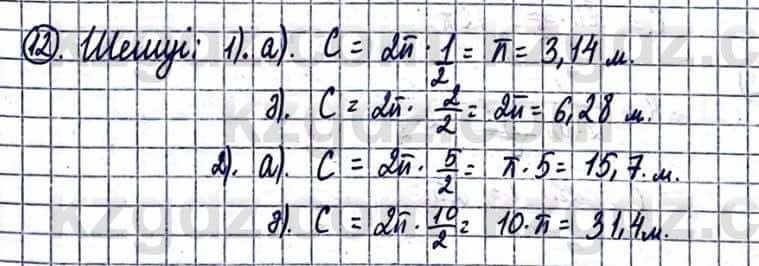 12. Шешуі: 1). а). C = 2π · 1/2 = π = 3,14 м.
ә). C = 2π · 2/2 = 2π = 6,28 м.
2). а). C = 2π · 5/2 = π · 5 = 15,7 м.
ә). C = 2π · 10/2 = 10 · π = 31,4 м.